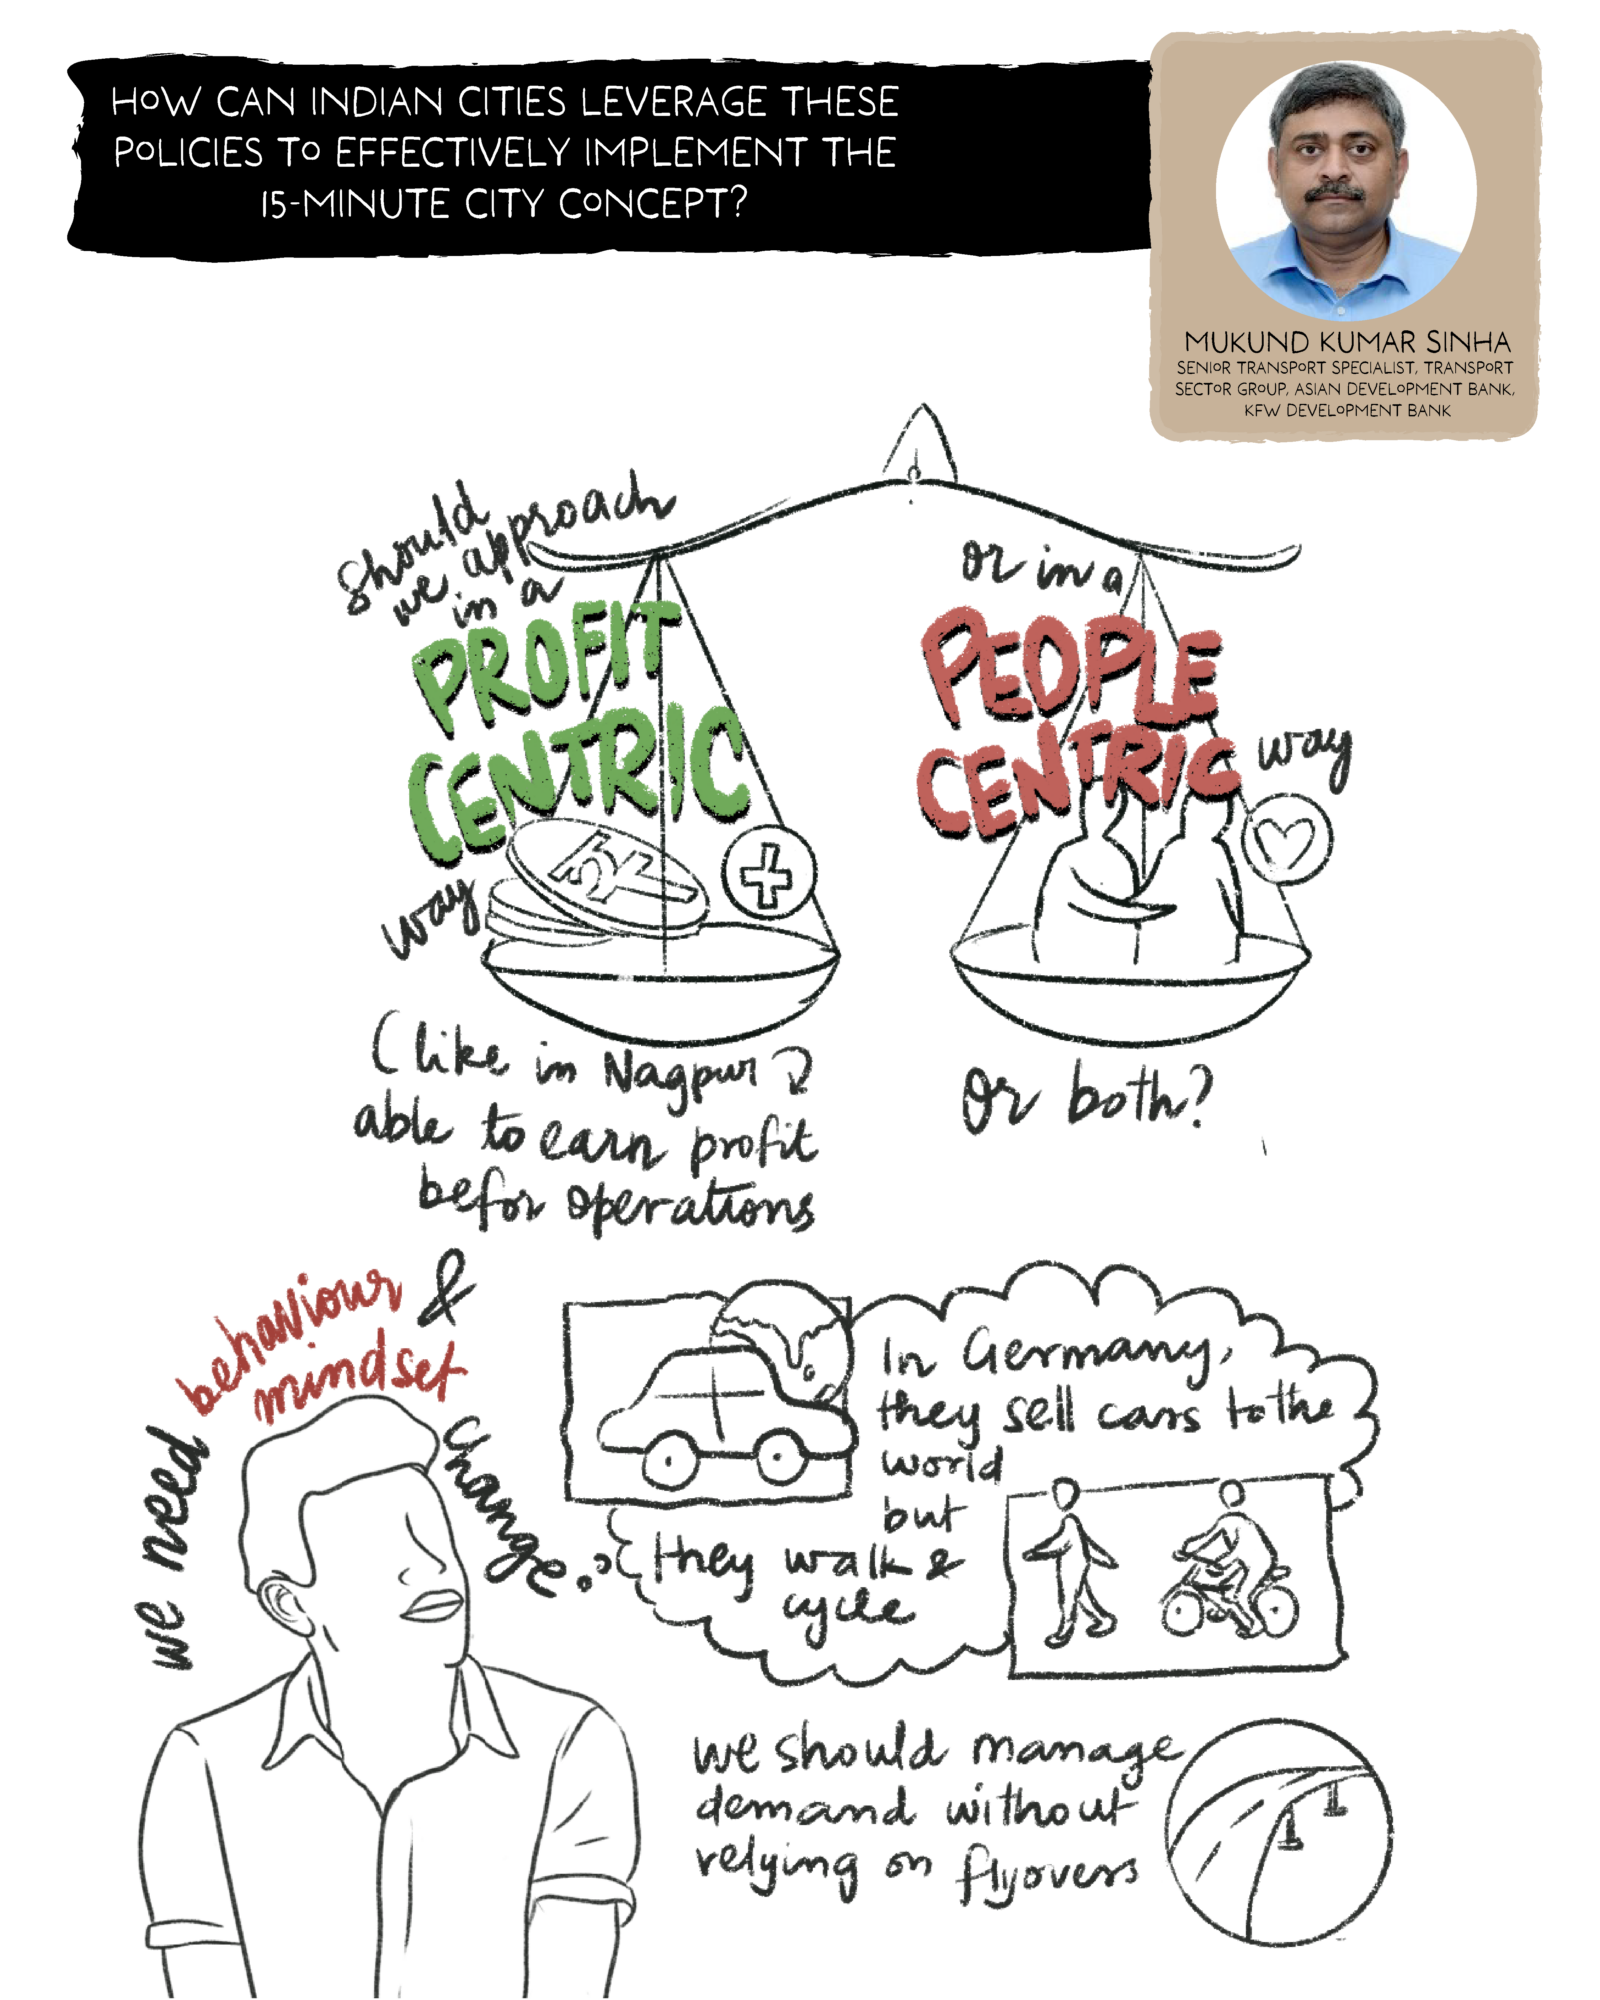 HOW CAN INDIAN CITIES LEVERAGE THESE
POLICIES TO EFFECTIVELY IMPLEMENT THE
15-MINUTE CITY CONCEPT?
MUKUND KUMAR SINHA
SENIOR TRANSPORT SPECIALIST, TRANSPORT
SECTOR GROUP, ASIAN DEVELOPMENT BANK,
KFW DEVELOPMENT BANK
should
we approach
in a
PROFIT
CENTRIC
way
or in a
PEOPLE
CENTRIC way
(like in Nagpur
able to earn profit
befor operations
or both?
we need behaviour &
mindset
change
In Germany,
they sell cars to the
world
but
they walk &
cycle
we should manage
demand without
relying on flyovers